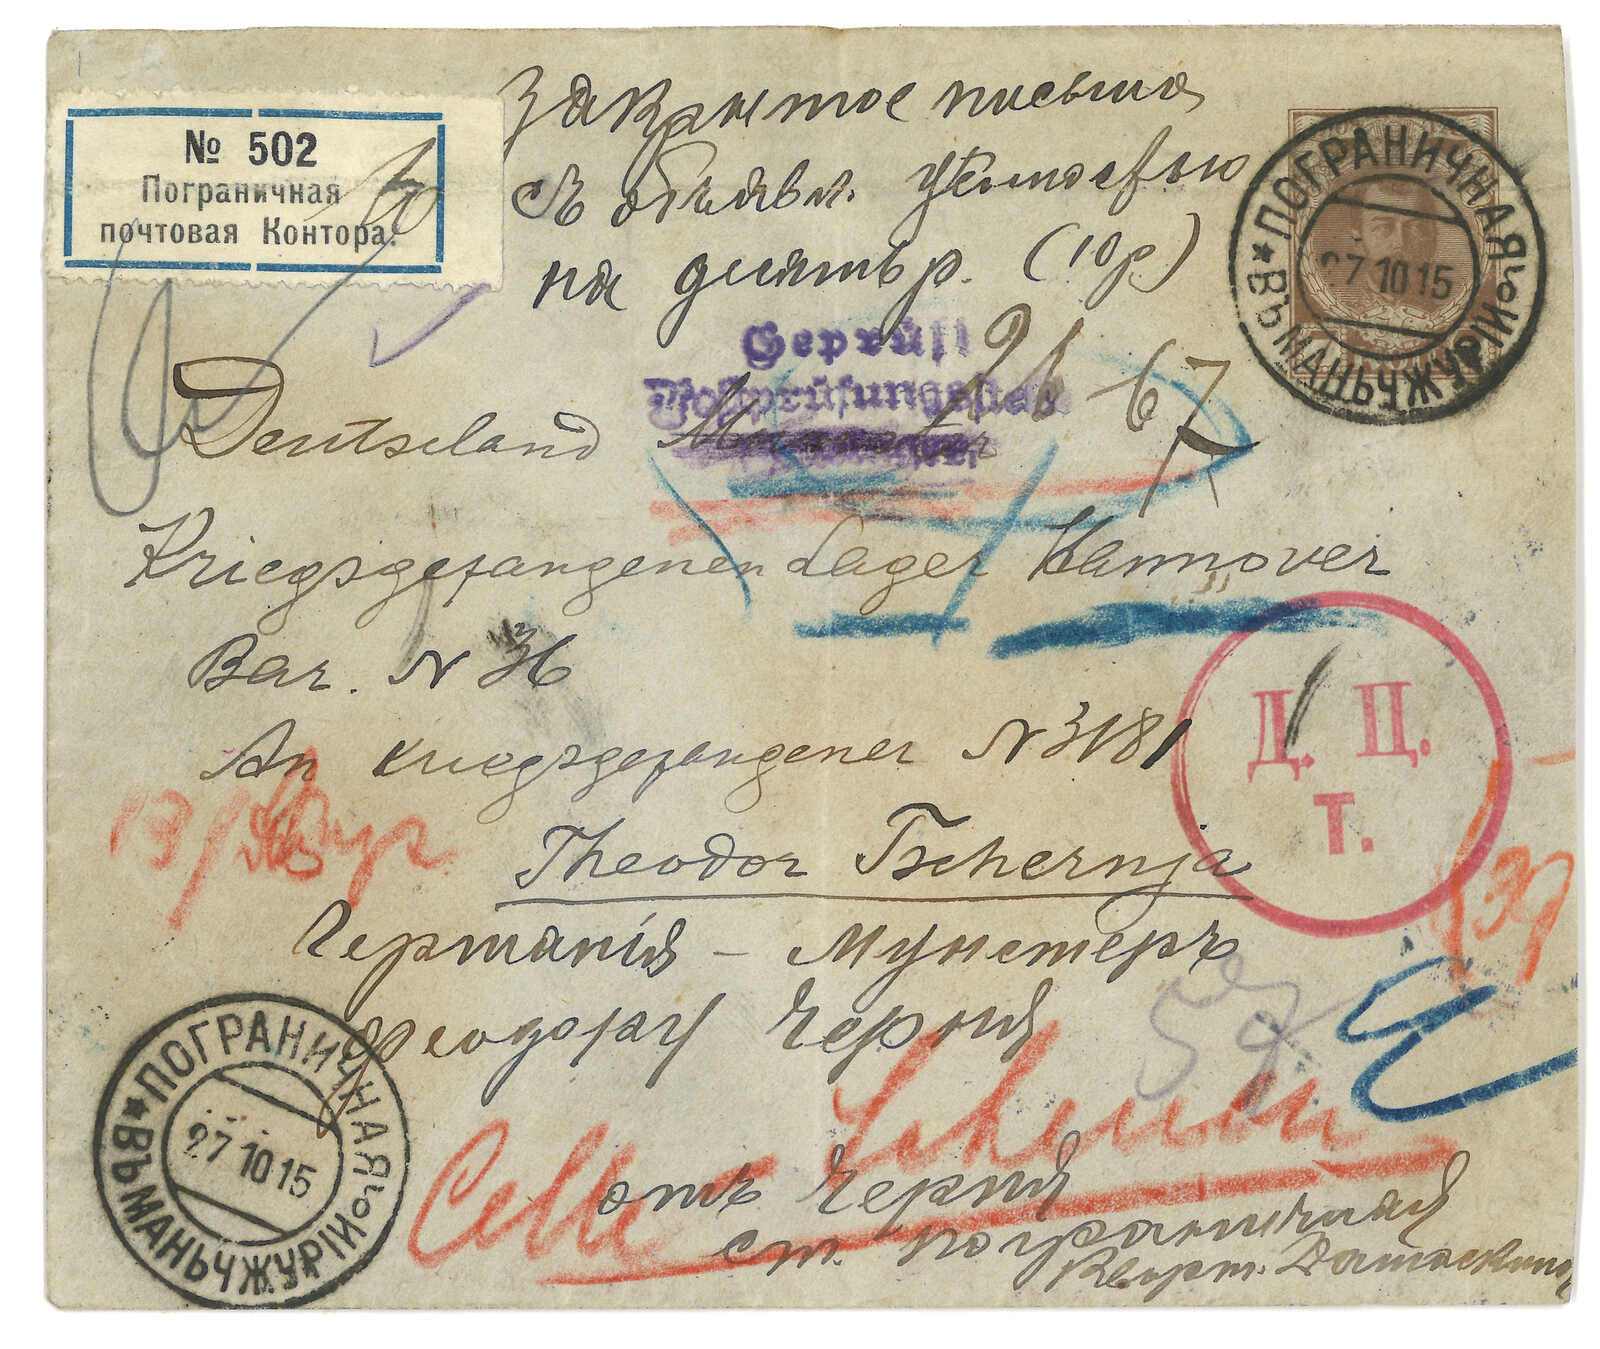 № 502
Пограничная
почтовая Контора.
Закрытое письмо
съ объявл. цѣностью
на десять р. (10р)
ПОГРАНИЧНАЯ
ВЪ МАНЬЧЖУРІИ
27 10 15
Geprüft
Postprüfungsstelle
67
Deutscland
Kriegsgefangenen Lager Hannover
Bar. N 36
An Kriegsgefangener N 3181
Д. Ц.
Т.
Theodor Tschernja
Германія - Мунстеръ
Феодору Черня
Celle
отъ Черня
ст. Пограничная
Кварт.
ПОГРАНИЧНАЯ
ВЪ МАНЬЧЖУРІИ
27 10 15